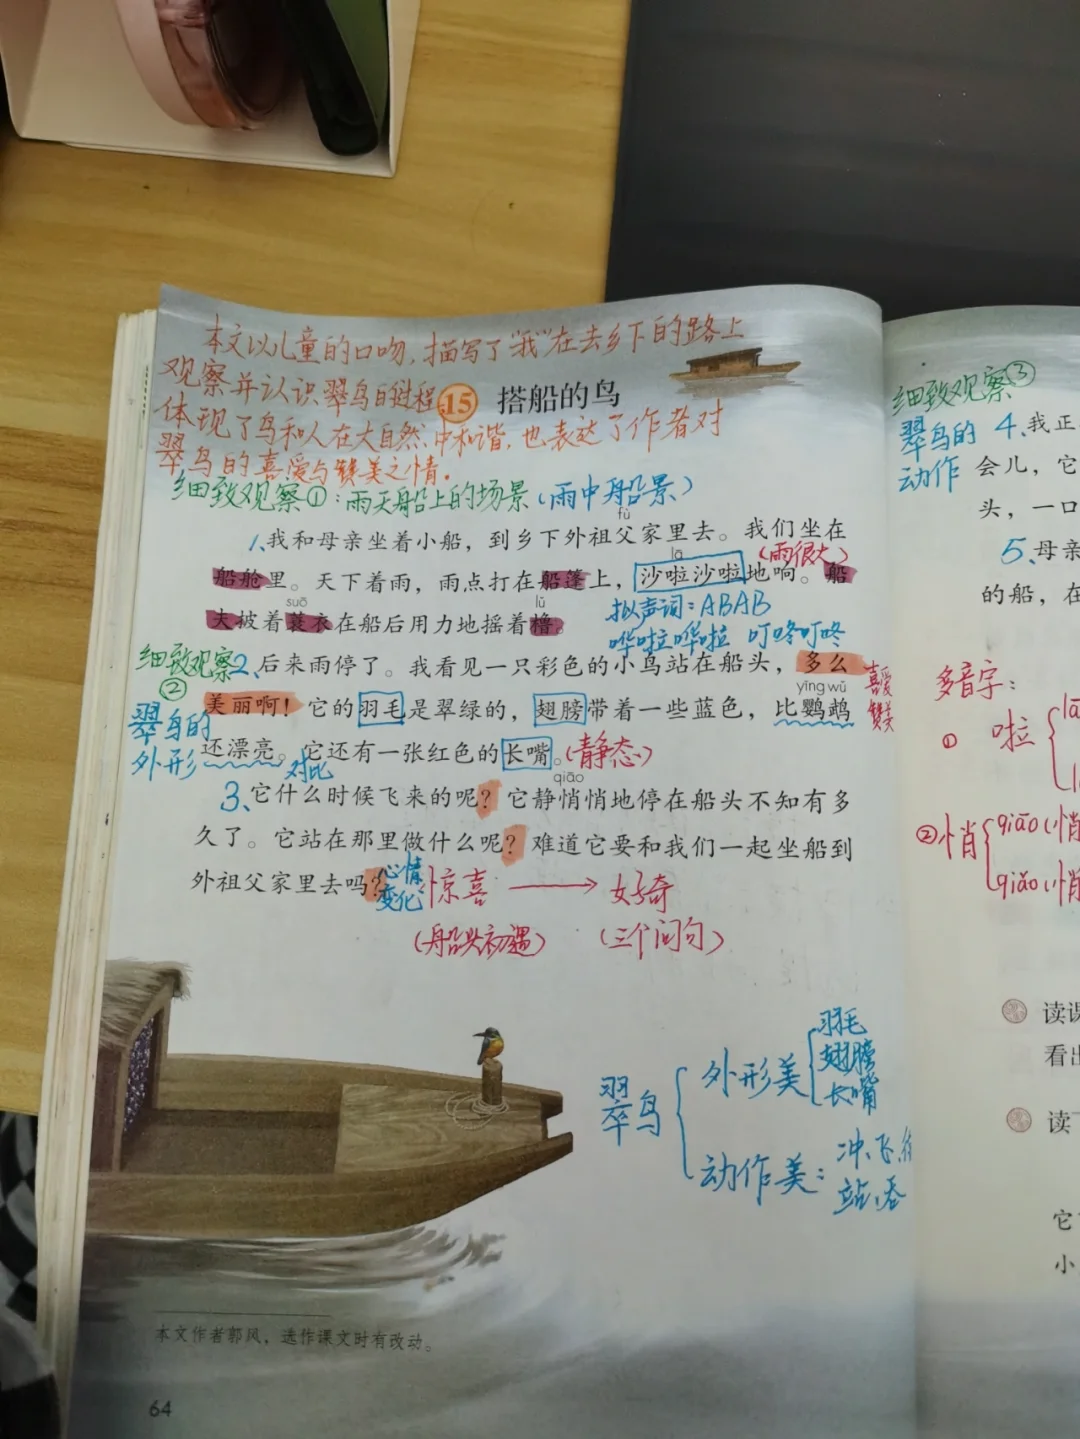 本文以儿童的口吻,描写了"我"在去乡下的路上
观察并认识翠鸟的过程,
15 搭船的鸟
体现了鸟和人在大自然中和谐,也表达了作者对
翠鸟的喜爱与赞美之情。
细致观察①:雨天船上的场景(雨中船景)
fù
1、我和母亲坐着小船,到乡下外祖父家里去。我们坐在
lā
(雨很大)
船舱里。天下着雨,雨点打在船篷上,沙啦沙啦地响。船
suō
lǔ
拟声词:ABAB
夫披着蓑衣在船后用力地摇着橹。
哗啦哗啦 叮咚叮咚
细致观察②
2、后来雨停了。我看见一只彩色的小鸟站在船头,多么
yīng wǔ
喜爱
赞美
翠鸟的
外形
美丽啊!它的羽毛是翠绿的,翅膀带着一些蓝色,比鹦鹉
还漂亮。它还有一张红色的长嘴。(静态)
对比
qiāo
3、它什么时候飞来的呢?它静悄悄地停在船头不知有多
久了。它站在那里做什么呢?难道它要和我们一起坐船到
外祖父家里去吗?
心情
变化
惊喜 → 好奇
(船头初遇) (三个问句)
翠鸟
外形美
羽毛
翅膀
长嘴
动作美:冲、飞、
站、吞
本文作者郭风,选作课文时有改动。
64
细致观察③
翠鸟的
动作
4、我正
会儿,它
头,一口
5、母亲
的船,在
多音字:
① 啦
② 悄
qiāo(悄
qiǎo(悄
读课
看出
读
它
小